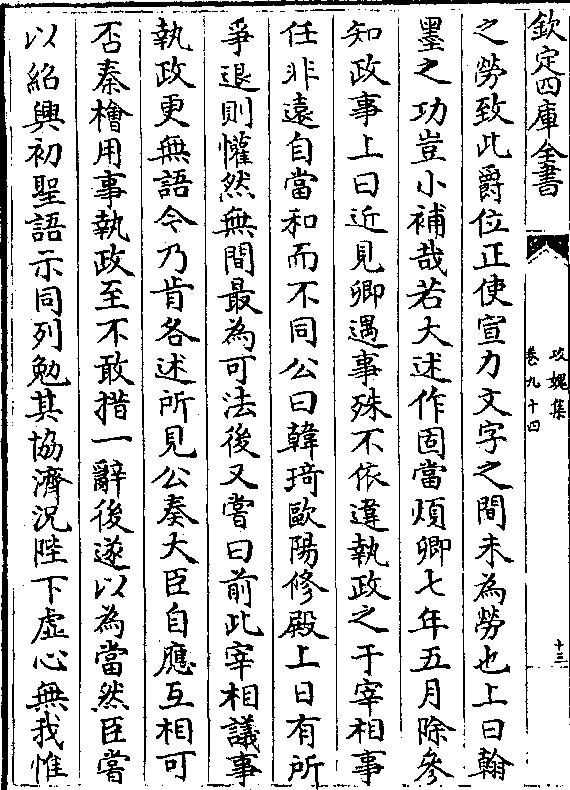 欽定四庫全書
攻媿集
卷九十四
十三
之勞致此爵位正使宣力文字之間未為勞也上曰翰
墨之功豈小補哉若大述作固當煩卿七年五月除參
知政事上曰近見卿遇事殊不依違執政之于宰相事
任非遠自當和而不同公曰韓琦歐陽修殿上日有所
爭退則懽然無間最為可法後又嘗曰前此宰相議事
執政更無語今乃肯各述所見公奏大臣自應互相可
否秦檜用事執政至不敢措一辭後遂以為當然臣嘗
以紹興初聖語示同列勉其協濟況陛下虛心無我惟